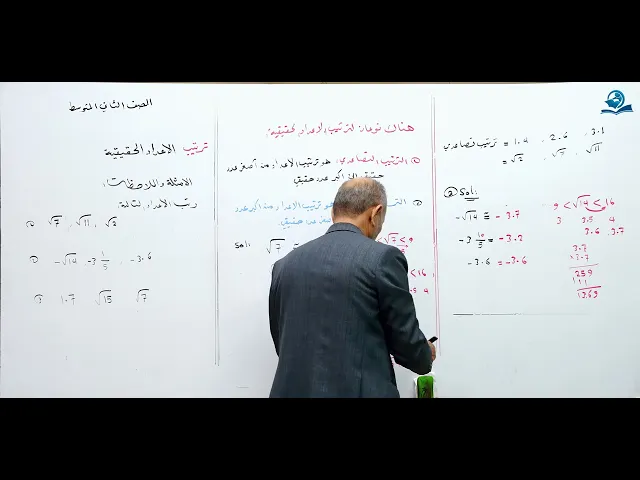 الصف الثاني المتوسط
ترتيب الاعداد الحقيقية
الامثلة والملاحظات:
رتب الاعداد التالية:
① √7 , √11 , √2
② -√14 , -3 1/5 , -3.6
③ 1.7 √15 √7
هناك نوعان لترتيب الاعداد الحقيقية:
① الترتيب التصاعدي: هو ترتيب الاعداد من أصغر عدد
حقيقي إلى اكبر عدد حقيقي
② هو ترتيب الاعداد من اكبر عدد
Sol: √7
√7 < 9
< 16
4
2.6 , 3.1
ترتيب تصاعدي = 1.4
= √2 , √7 , √11
② Sol:
-√14 ≅ -3.7
-3.2
-3.6 = -3.6
9 < √14 < 16
3 3.5 4
3.6 3.7
3.7
×3.7
259
111
1369